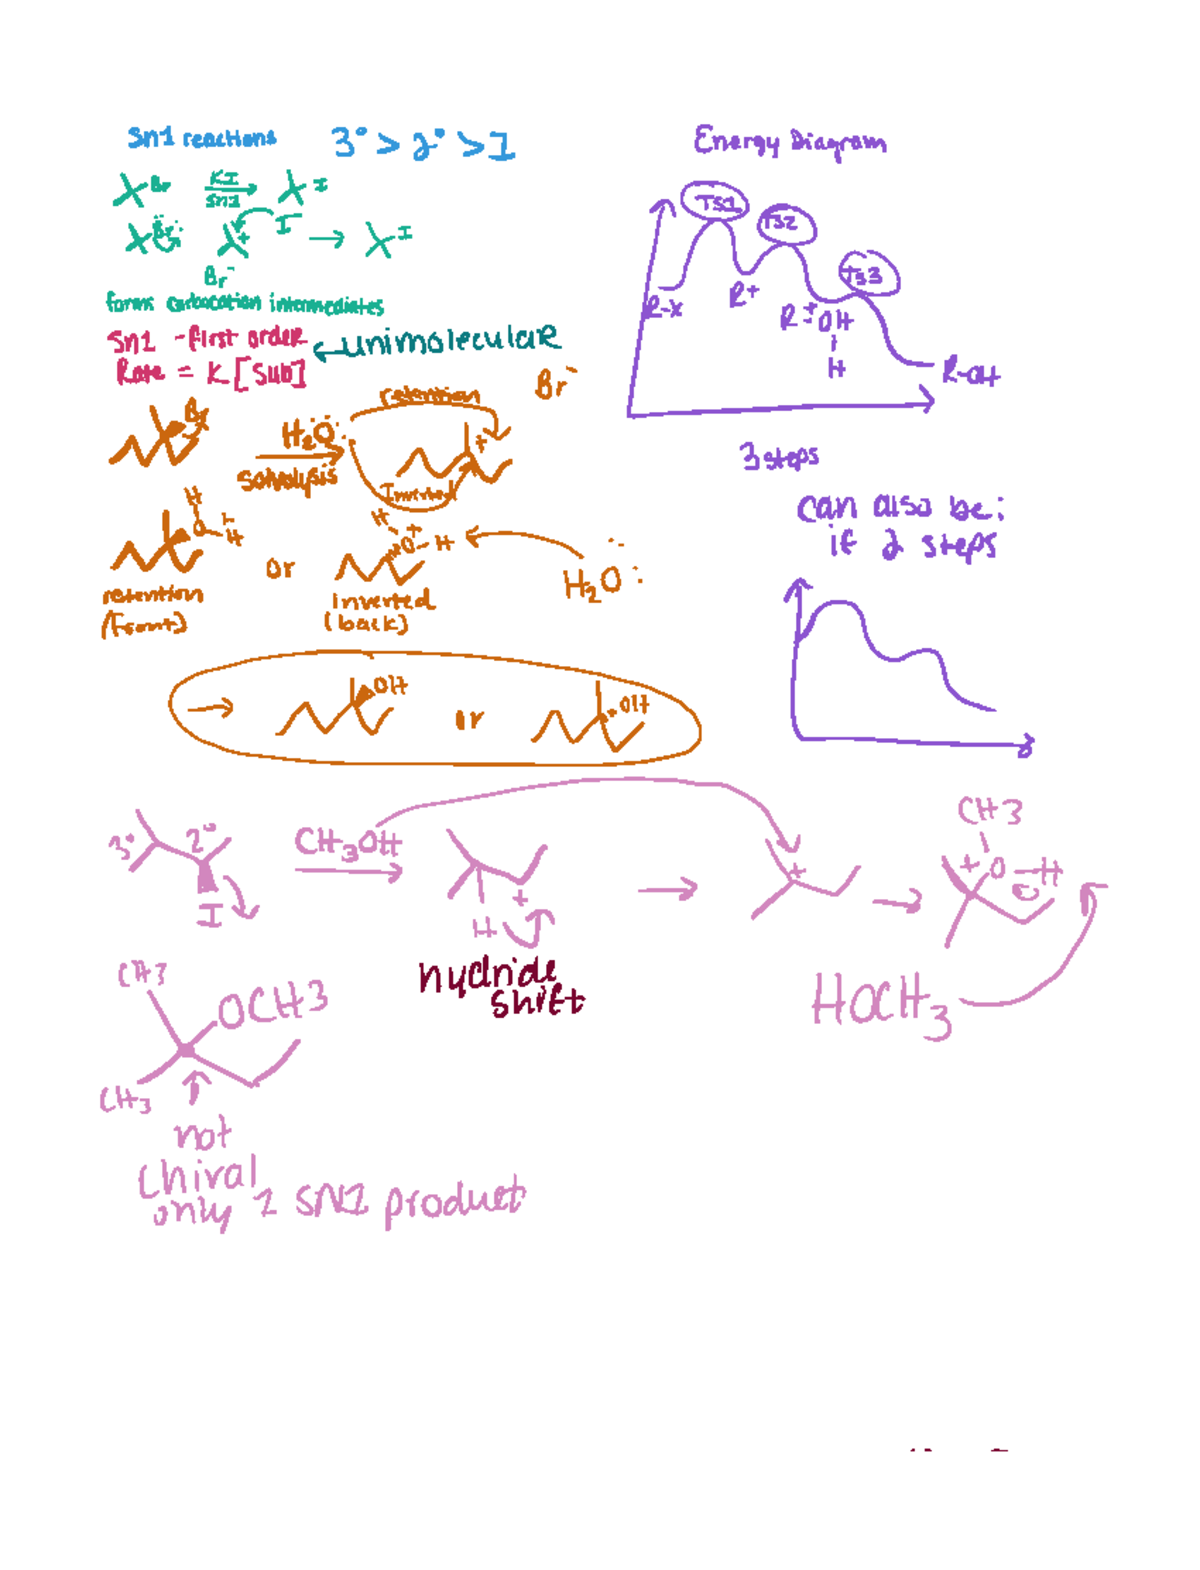 Sn1 reactions 3° > 2° > 1
Br KI Sn1 I
Br: + I⁻ I
Br⁻
forms carbocation intermediates
Sn1 -first order
←unimolecular
Rate = K [Sub]
Energy Diagram
TS1
TS2
TS3
R-X
R+
R-⁺OH
H
R-OH
3 steps
can also be:
if 2 steps
Br H₂O: solvolysis retention Inverted + Br⁻
H O H + retention (front)
or
H O⁺ H inverted (back)
H₂O:
→ OH or OH
3° 2° I CH₃OH H +
hydride shift
+
CH3
+ O H
HOCH₃
CH3 OCH3
CH₃
not
chiral
only 1 SN1 product